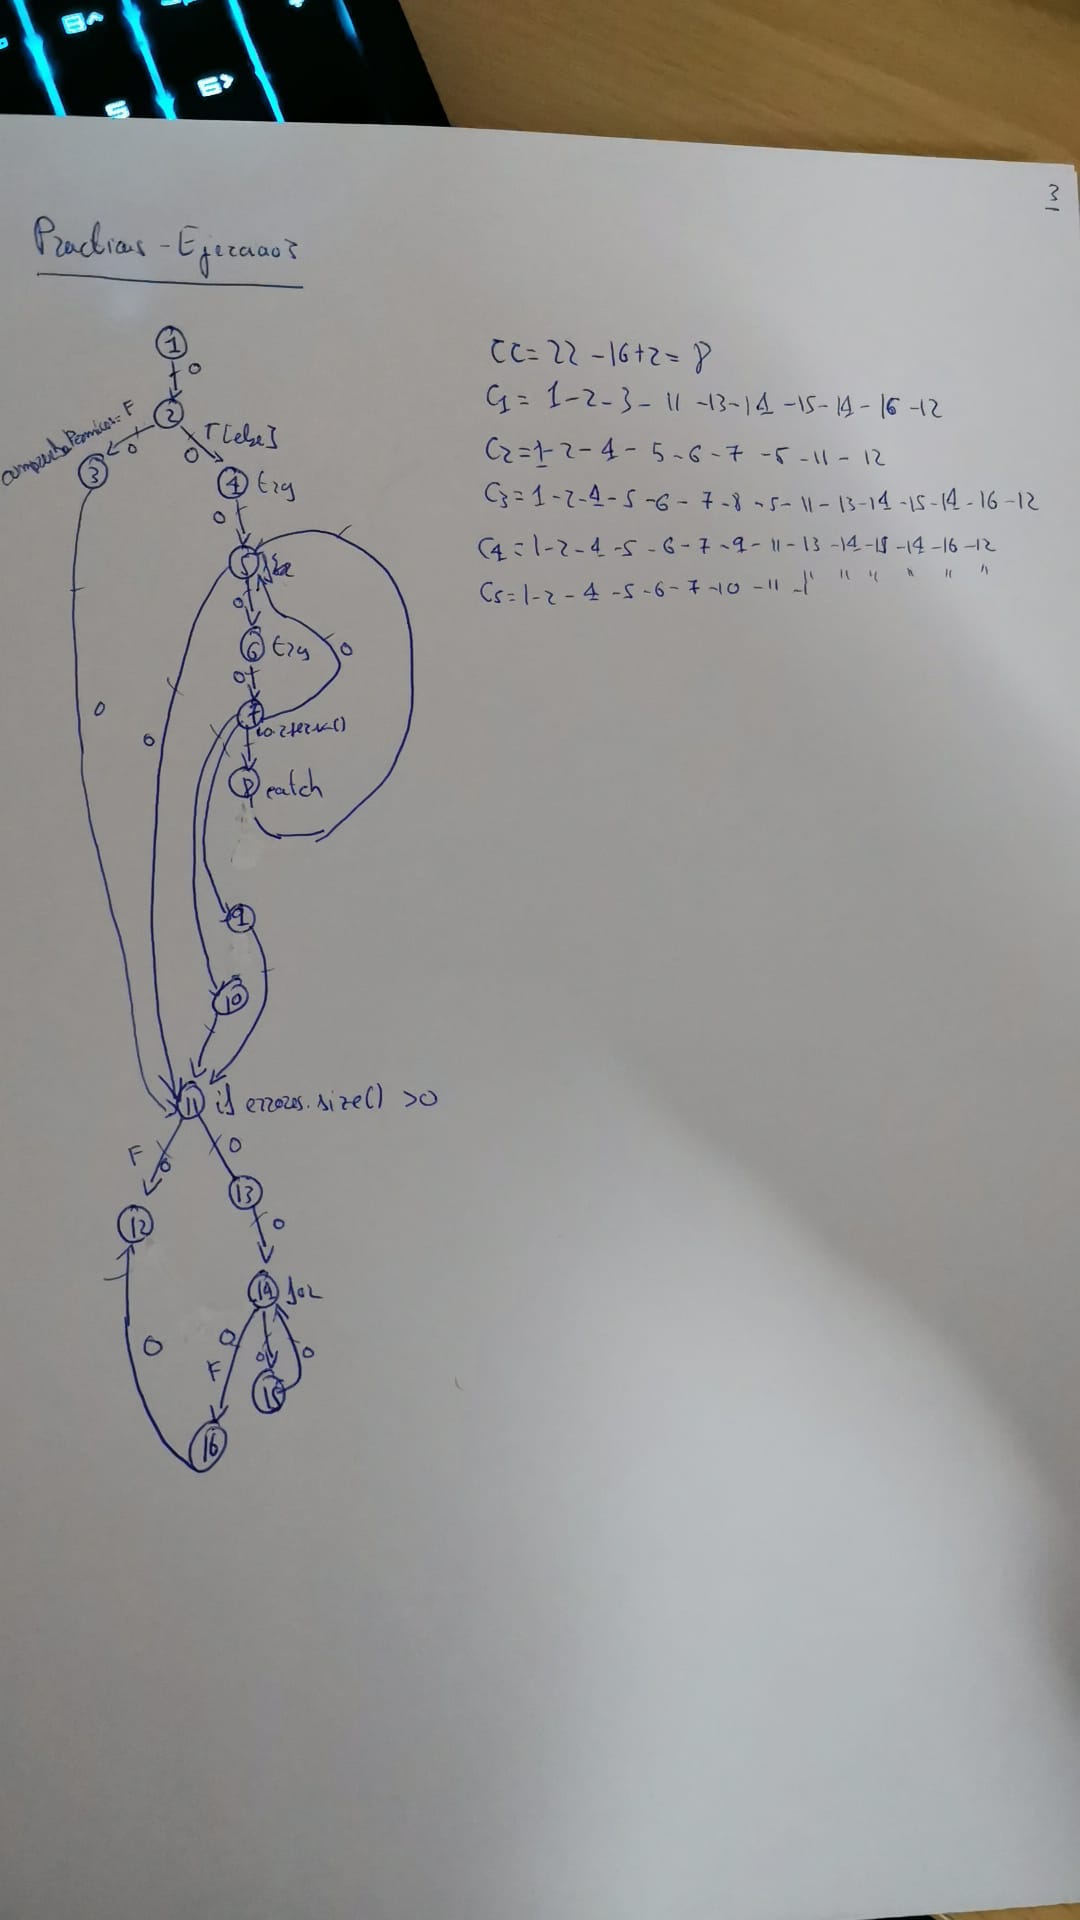 3
Practicas - Ejercicio 3
1
0
2
comprueba Permisos = F
0
T [else]
0
3
4 try
0
5 for
0
6 try
0
0
7
io.zzerr()
8 catch
0
0
9
10
11 if errores.size() >0
F
0
0
12
13
0
14 for
0
0
0
F
15
0
16
CC= 22 -16+2= 8
C1 = 1-2-3- 11 -13-14 -15-14-16 -12
C2=1-2-4- 5-6-7 -5-11-12
C3=1-2-4-5-6-7-8-5-11-13-14-15-14-16-12
C4=1-2-4-5-6-7-9-11-13-14-15-14-16-12
C5=1-2-4-5-6-7-10-11-" " " " " "